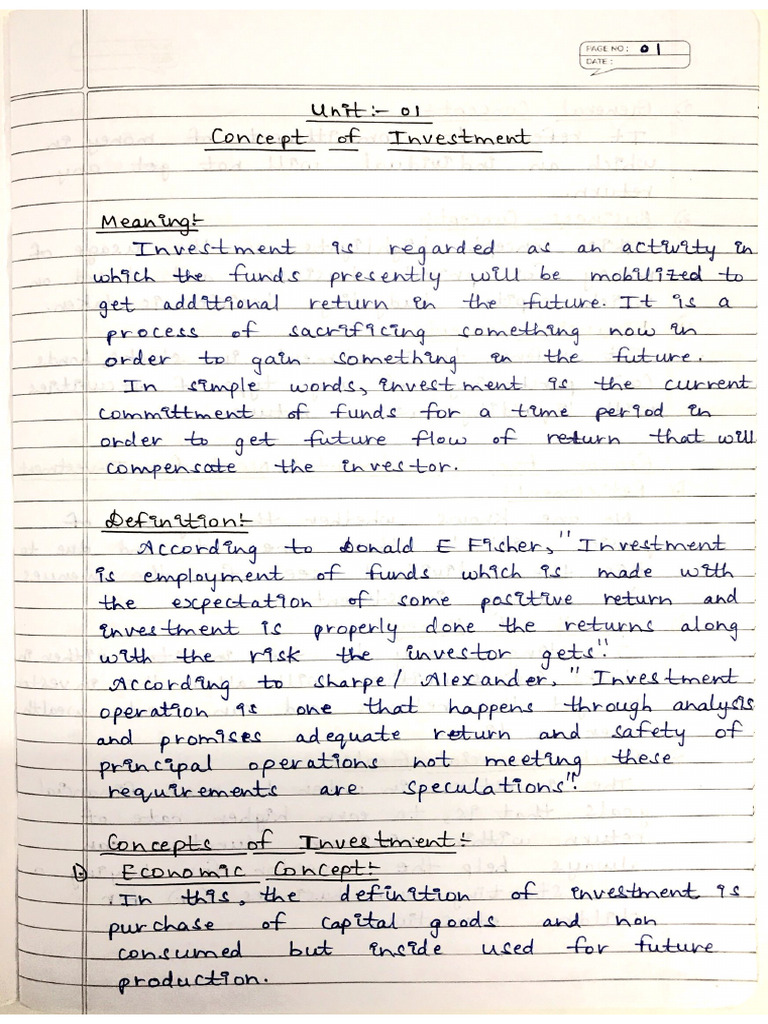 PAGE NO: 01
DATE:
Unit:- 01
Concept of Investment
Meaning:-
Investment is regarded as an activity in
which the funds presently will be mobilized to
get additional return in the future. It is a
process of sacrificing something now in
order to gain something in the future.
In simple words, investment is the current
committment of funds for a time period in
order to get future flow of return that will
compensate the investor.
Definition:-
According to Donald E Fisher, "Investment
is employment of funds which is made with
the expectation of some positive return and
investment is properly done the returns along
with the risk the investor gets".
According to Sharpe/ Alexander, "Investment
operation is one that happens through analysis
and promises adequate return and safety of
principal operations not meeting these
requirements are speculations".
Concepts of Investment:-
1) Economic Concept:-
In this, the definition of investment is
purchase of capital goods and non
consumed but inside used for future
production.